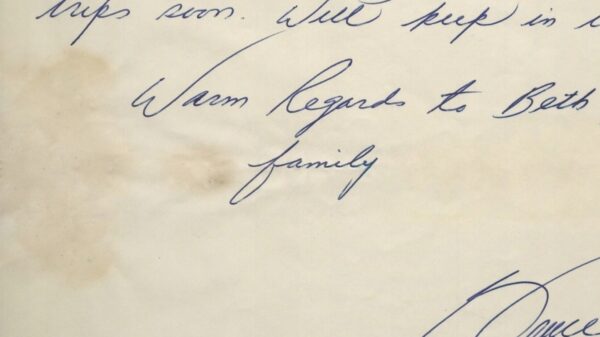 trips soon. Will keep in
Warm Regards to Beth
family